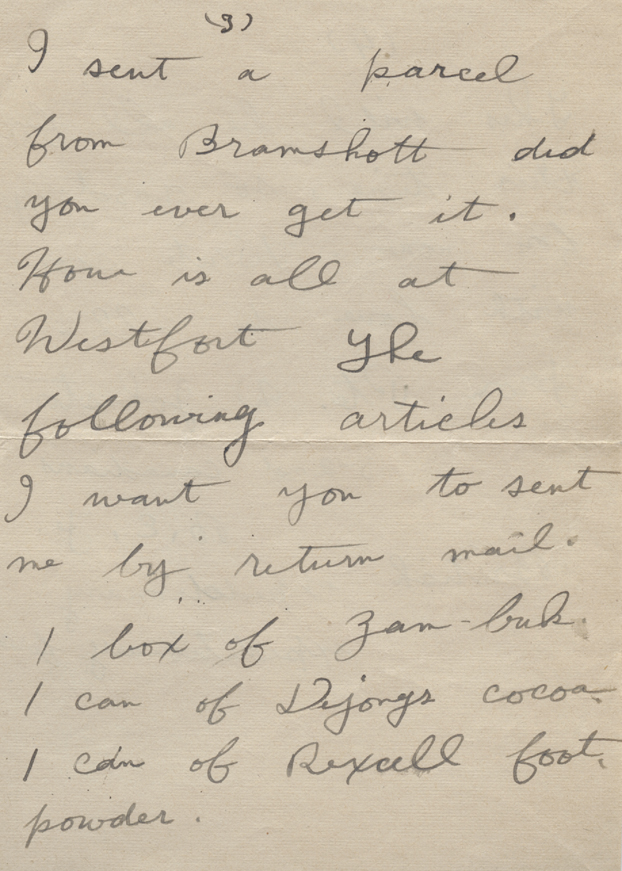 (3)
I sent a parcel
from Bramshott did
you ever get it.
How is all at
Westfort The
following articles
I want you to sent
me by return mail.
1 box of Zam-buk.
1 can of Dejongs cocoa.
1 can of Rexcell foot.
powder.